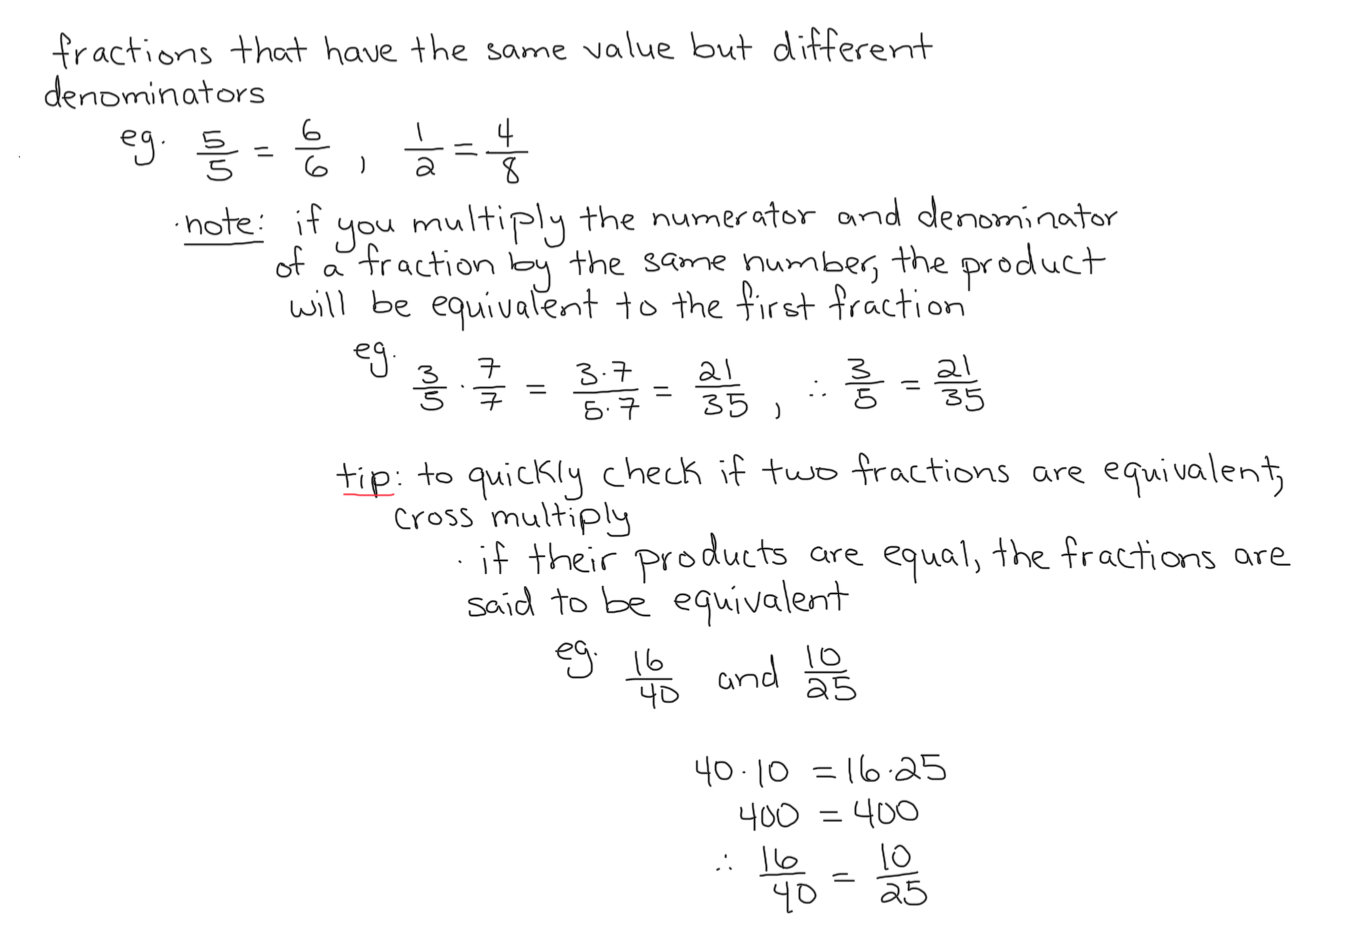 fractions that have the same value but different
denominators
eg. 5/5 = 6/6 , 1/2 = 4/8
· note: if you multiply the numerator and denominator
of a fraction by the same number, the product
will be equivalent to the first fraction
eg. 3/5 · 7/7 = 3·7/5·7 = 21/35 , ∴ 3/5 = 21/35
tip: to quickly check if two fractions are equivalent,
cross multiply
· if their products are equal, the fractions are
said to be equivalent
eg. 16/40 and 10/25
40·10 = 16·25
400 = 400
∴ 16/40 = 10/25